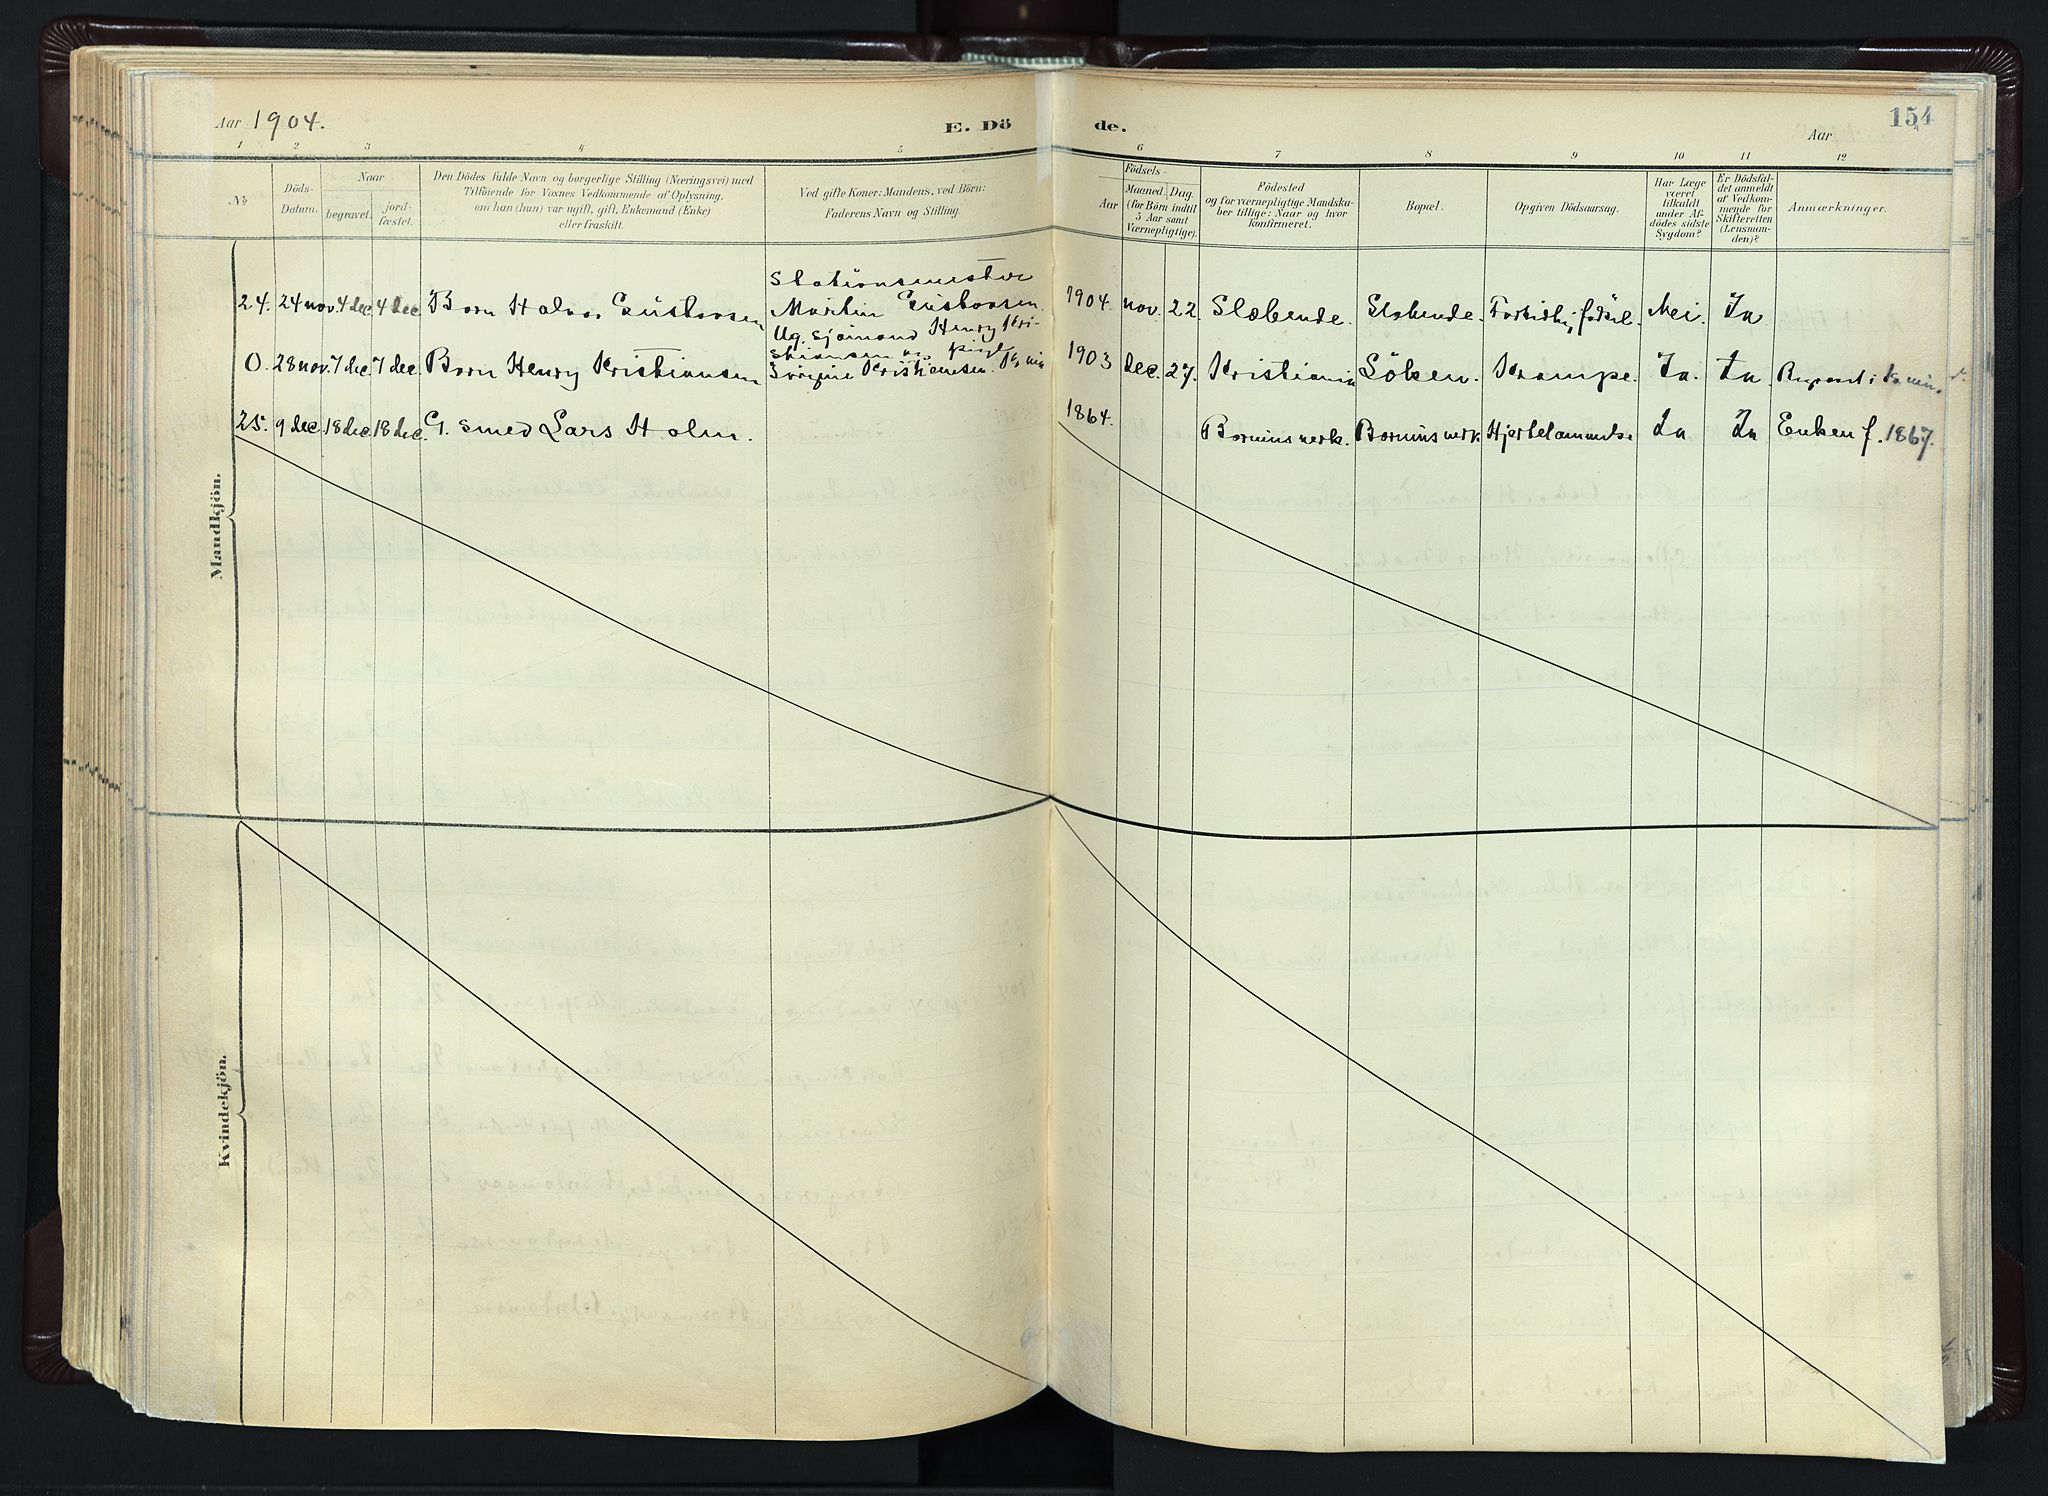 Aar 1904.
E. Dö
de.
Aar
154
1 2 3 4 5 6 7 8 9 10 11 12
No
Döds-
Datum.
Naar
begravet.
jord-
fæstet.
Den Dödes fulde Navn og borgerlige Stilling (Næringsvei) med
Tilföiende for Voxnes Vedkommende af Oplysning,
om han (hun) var ugift, gift, Enkemand (Enke)
eller fraskilt.
Ved gifte Koner: Mandens, ved Börn:
Faderens Navn og Stilling.
Födsels-
Aar
Maaned. Dag.
(for Börn indtil
5 Aar samt
Værnepligtige).
Födested
og for værnepligtige Mandska-
ber tillige: Naar og hvor
konfirmeret.
Bopæl.
Opgiven Dödsaarsag.
Har Læge
været
tilkaldt
under Af-
dödes sidste
Sygdom?
Er Dödsfal-
det anmeldt
af Vedkom-
mende for
Skifteretten
(Lensman-
den)?
Anmærkninger.
Mandkjön.
24. 24 nov. 4 dec 4 dec Barn Halvor Gustavsen
Stationsmester
Martin Gustavsen
1904. nov. 22. Slæbende. Slæbende. Nei. Ja
0. 28 nov. 7 dec 7 dec. Barn Henry Kristiansen
Ug. sjømand Henry Kri-
stiansen og pige
Kristiansen
1903 dec. 27. Kristiania Söken. Krampe. Ja. Ja
25. 9 dec 18 dec 18 dec. G. smed Lars Holm.
1864. Bærums verk. Bærums verk Hjertelammelse Ja Ja Enken f. 1867.
Kvindekjön.